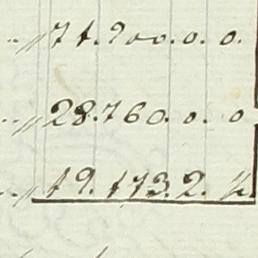 „ 71.200.0.0.
„ 28.760.0.0
„ 19.173.2.½